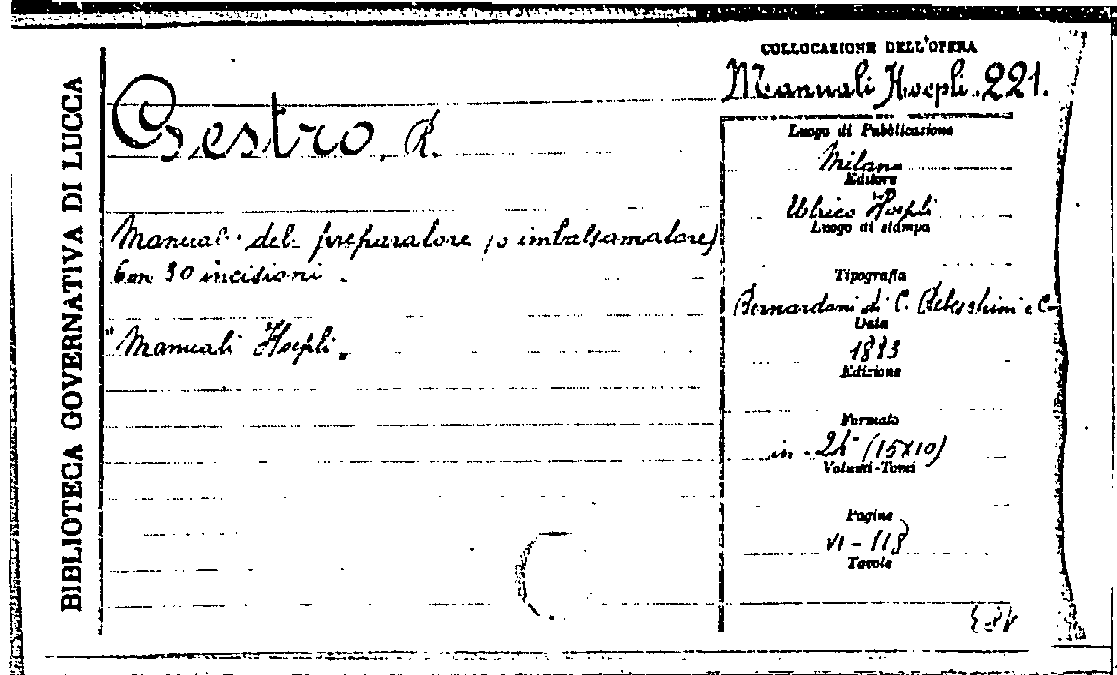 BIBLIOTECA GOVERNATIVA DI LUCCA
Gestro, R.
Manual del preparatore (o imbalsamatore)
Con 30 incisioni.
"Manuali Hoepli"
COLLOCAZIONE DELL'OPERA
Manuali Hoepli 221.
Luogo di Pubblicazione
Milano
Editore
Ulrico Hoepli
Luogo di stampa
Tipografia
Bernardoni di C. Rebeschini e C.
Data
1883
Edizione
Formato
in - 24° (15x10)
Volumi-Tomi
Pagine
VI - 118
Tavole